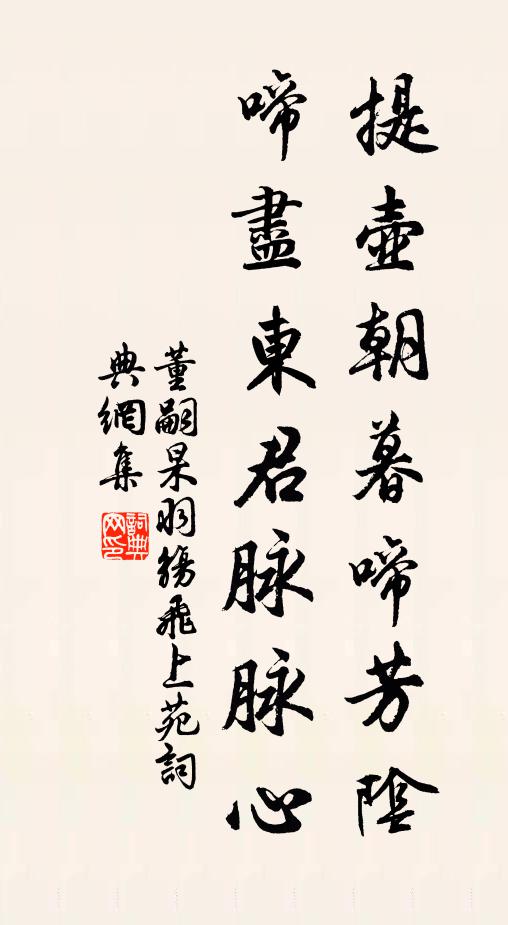 提壺朝暮啼芳陰
啼盡東君脉脉心
董嗣杲羽觴飛上苑詞
典網集
詞典網印